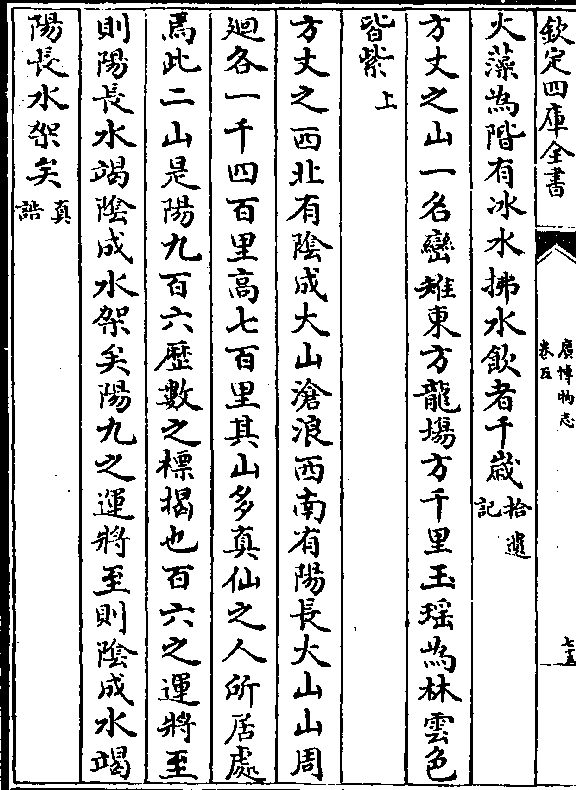 欽定四庫全書
廣博物志
卷五
七十五
火藻為階有氷水拂水飲者千歲拾遺記
方丈之山一名巒雉東方龍場方千里玉瑶為林雲色
皆紫上
方丈之西北有陰成大山滄浪西南有陽長大山山周
廻各一千四百里高七百里其山多真仙之人所居處
焉此二山是陽九百六歷數之標揭也百六之運將至
則陽長水竭陰成水架矣陽九之運將至則陰成水竭
陽長水架矣真誥